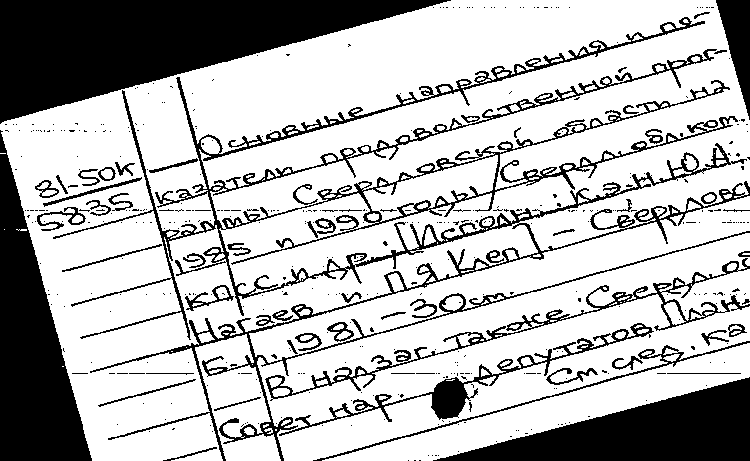 81-50к
5835
Основные направления и по-
казатели продовольственной прог-
раммы Свердловской области на
1985 и 1990 годы / Свердл. обл. ком.
КПСС и др.; [Исполн.: к.э.н. Ю.А.
Нагаев и П.Я. Клеп]. - Свердловск
Б. и., 1981. - 30 ст.
В надзаг. также: Свердл. об
Совет нар. депутатов. План.
См. след. ка